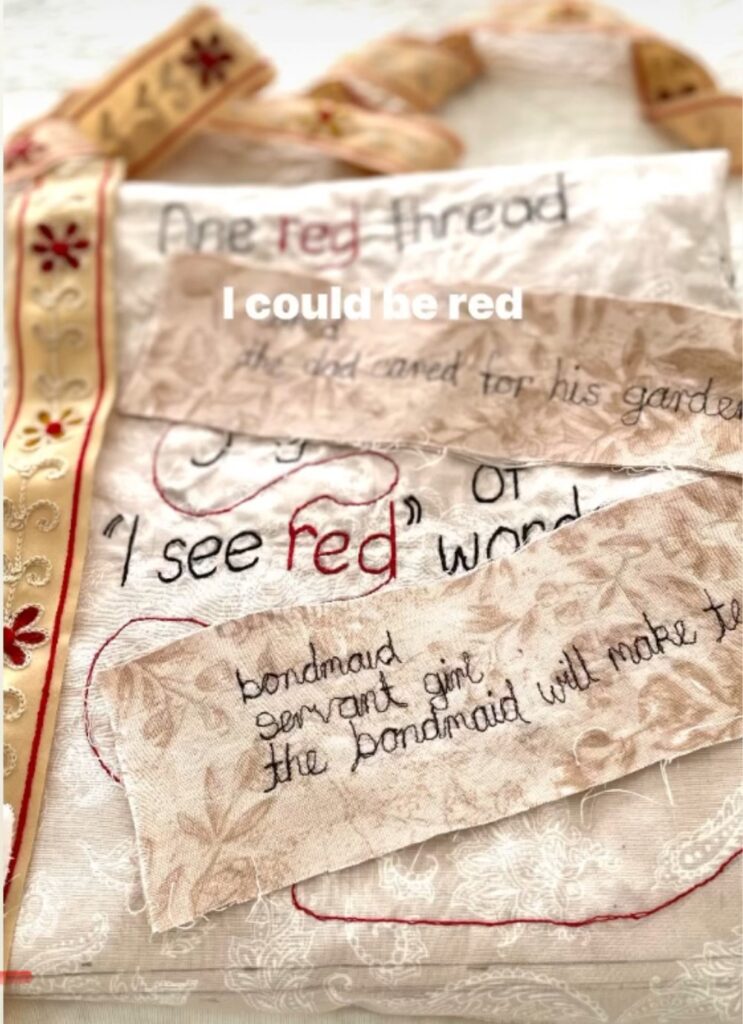 red thread
I could be red
the dad cared for his garden
of
"I see red"
bondmaid
servant girl
the bondmaid will make te